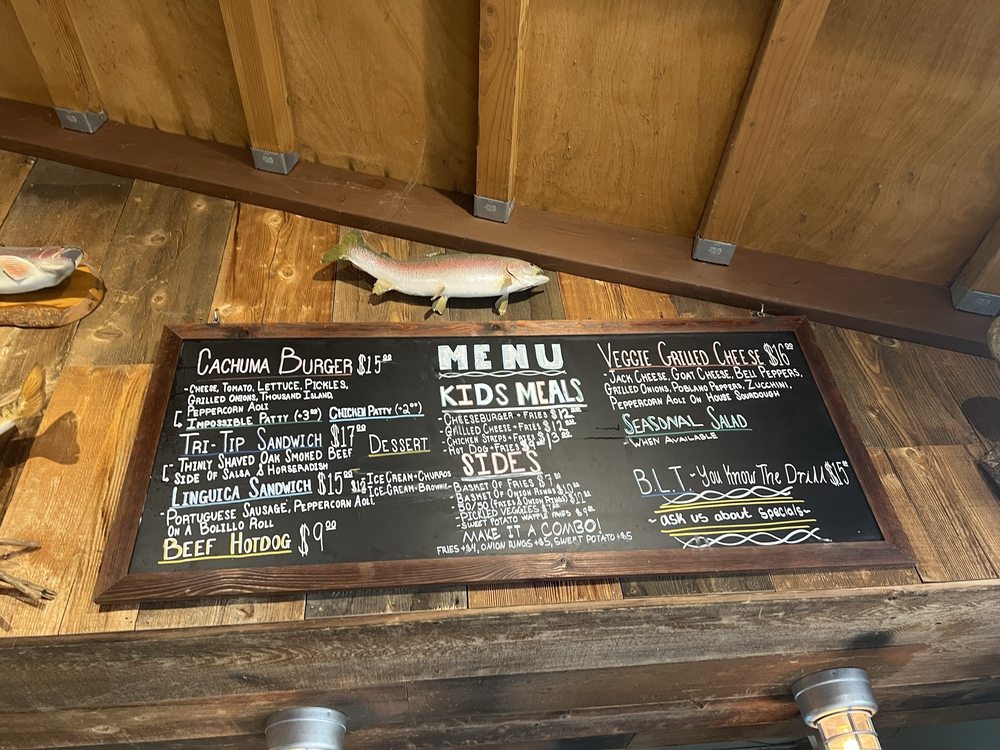 CACHUMA BURGER $15.00
- CHEESE, TOMATO, LETTUCE, PICKLES,
GRILLED ONIONS, THOUSAND ISLAND,
PEPPERCORN AOLI
IMPOSSIBLE PATTY (+3.00) CHICKEN PATTY (+2.00)
TRI-TIP SANDWICH $17.00
THINLY SHAVED OAK SMOKED BEEF
SIDE OF SALSA & HORSERADISH
LINGUICA SANDWICH $15.00
- PORTUGUESE SAUSAGE, PEPPERCORN AOLI,
ON A BOLILLO ROLL
BEEF HOTDOG $9.00
DESSERT
- ICE CREAM + CHURROS
ICE CREAM + BROWNIE
MENU
KIDS MEALS
- CHEESEBURGER + FRIES $12.00
- GRILLED CHEESE + FRIES $12.00
- CHICKEN STRIPS + FRIES
- HOT DOG + FRIES $13.00
SIDES
- BASKET OF FRIES
- BASKET OF ONION RINGS
- 50/50 (FRIES & ONION RINGS)
- PICKLED VEGGIES
- SWEET POTATO WAFFLE FRIES
MAKE IT A COMBO!
FRIES +$4, ONION RINGS +$5, SWEET POTATO +$5
VEGGIE GRILLED CHEESE $16.00
- JACK CHEESE, GOAT CHEESE, BELL PEPPERS,
GRILLED ONIONS, POBLANO PEPPERS, ZUCCHINI,
PEPPERCORN AOLI ON HOUSE SOURDOUGH
SEASONAL SALAD
- WHEN AVAILABLE
B.L.T - YOU KNOW THE DRILL $15.00
~ ask us about specials ~